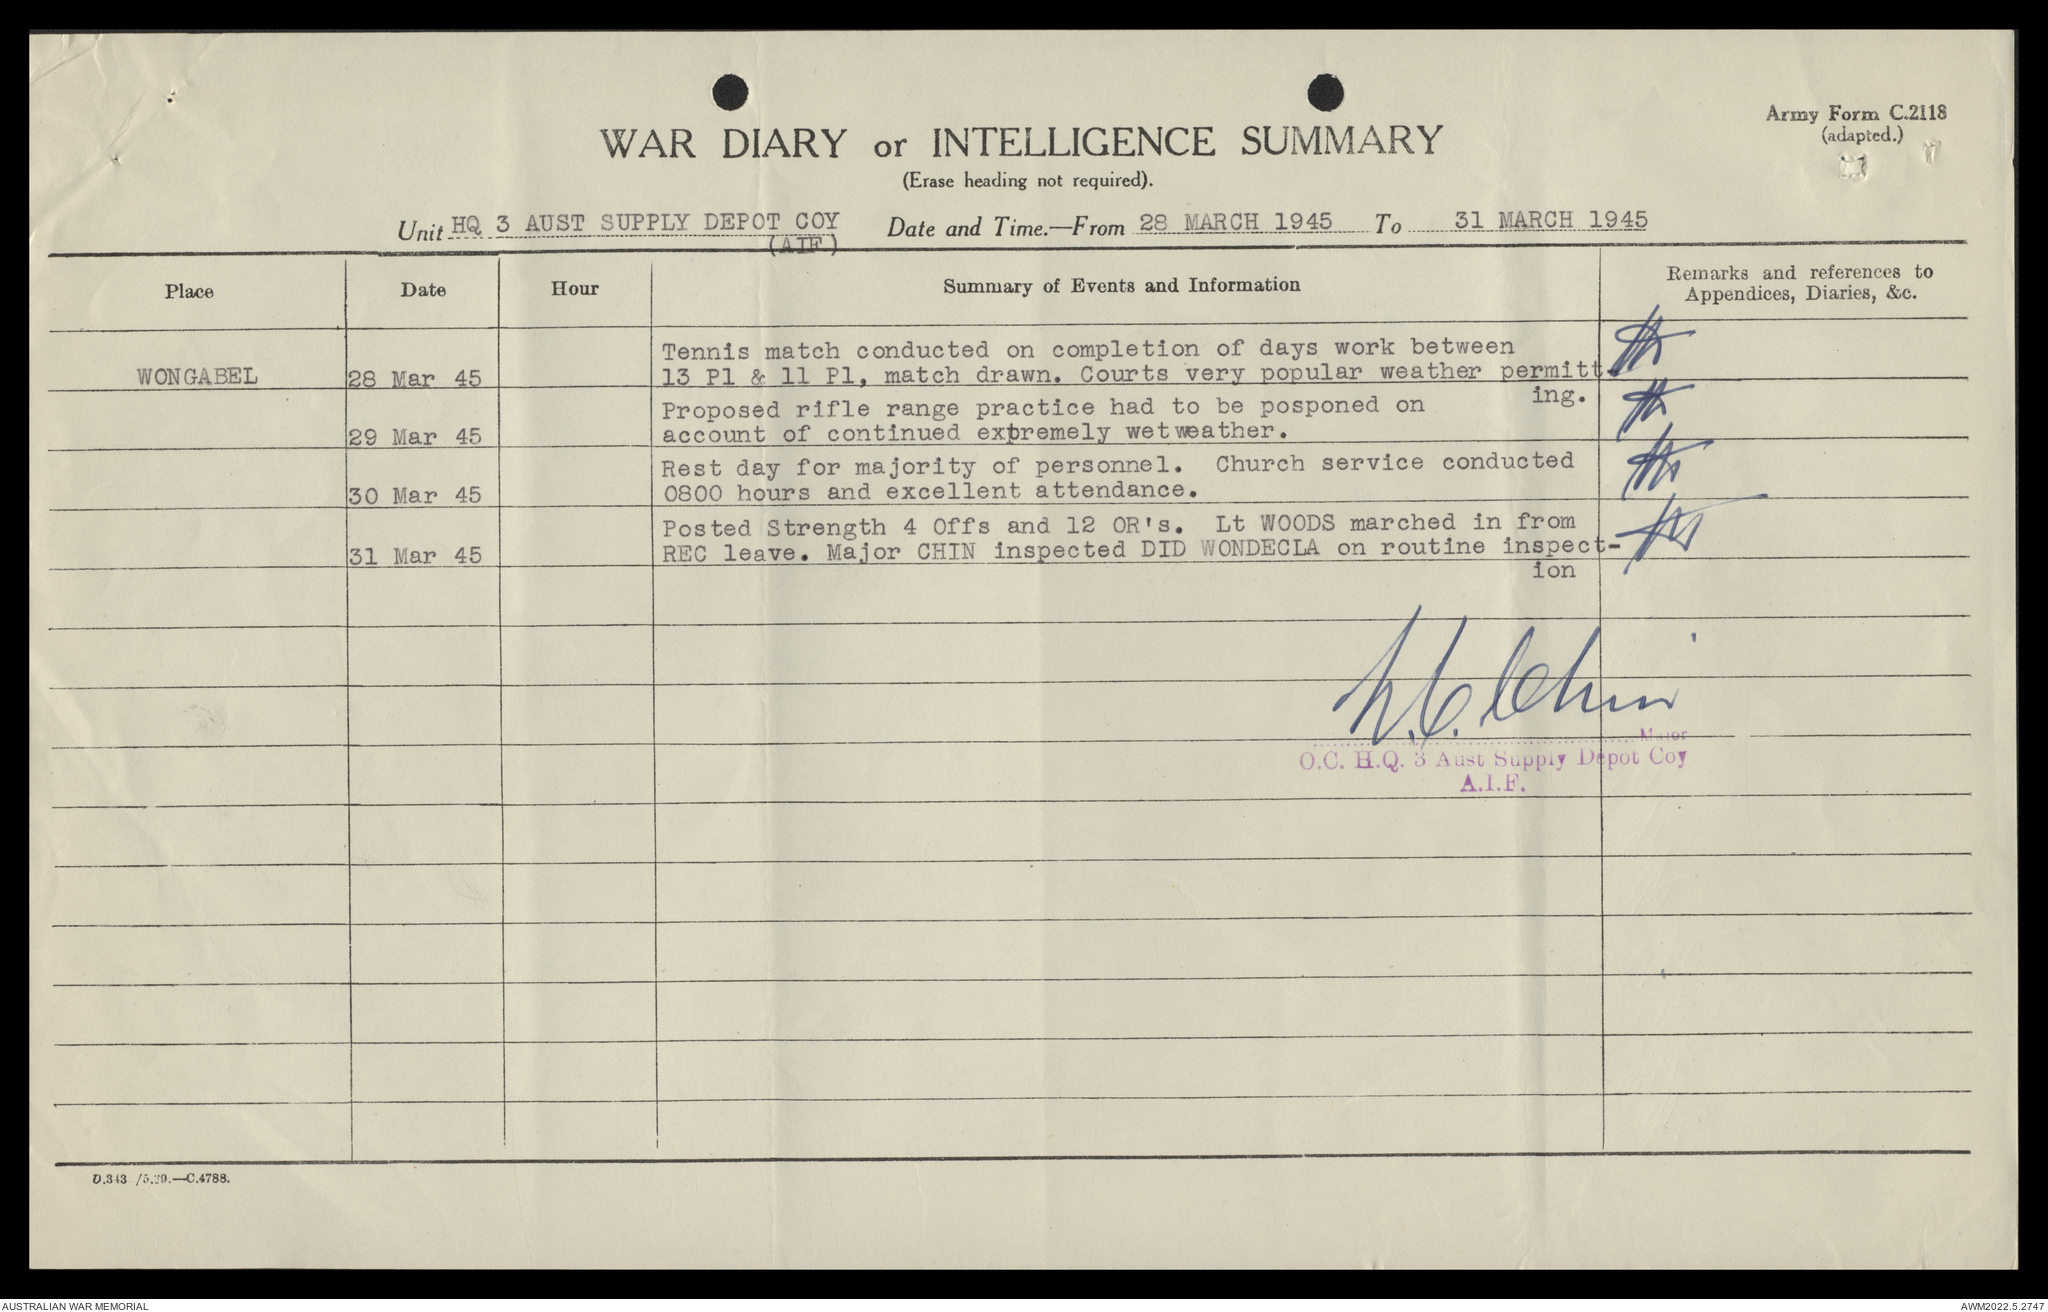 Army Form C.2118
(adapted.)
WAR DIARY or INTELLIGENCE SUMMARY
(Erase heading not required).
Unit HQ 3 AUST SUPPLY DEPOT COY Date and Time.—From 28 MARCH 1945 To 31 MARCH 1945
(AIF)
Place Date Hour Summary of Events and Information Remarks and references to
Appendices, Diaries, &c.
Tennis match conducted on completion of days work between
WONGABEL 28 Mar 45 13 Pl & 11 Pl, match drawn. Courts very popular weather permitt-
ing.
Proposed rifle range practice had to be posponed on
29 Mar 45 account of continued extremely wet weather.
Rest day for majority of personnel. Church service conducted
30 Mar 45 0800 hours and excellent attendance.
Posted Strength 4 Offs and 12 OR's. Lt WOODS marched in from
31 Mar 45 REC leave. Major CHIN inspected DID WONDECLA on routine inspect-
ion
Chin
Major
O.C. H.Q. 3 Aust Supply Depot Coy
A.I.F.
D.343 /5.39.—C.4788.
AUSTRALIAN WAR MEMORIAL AWM2022.5.2747